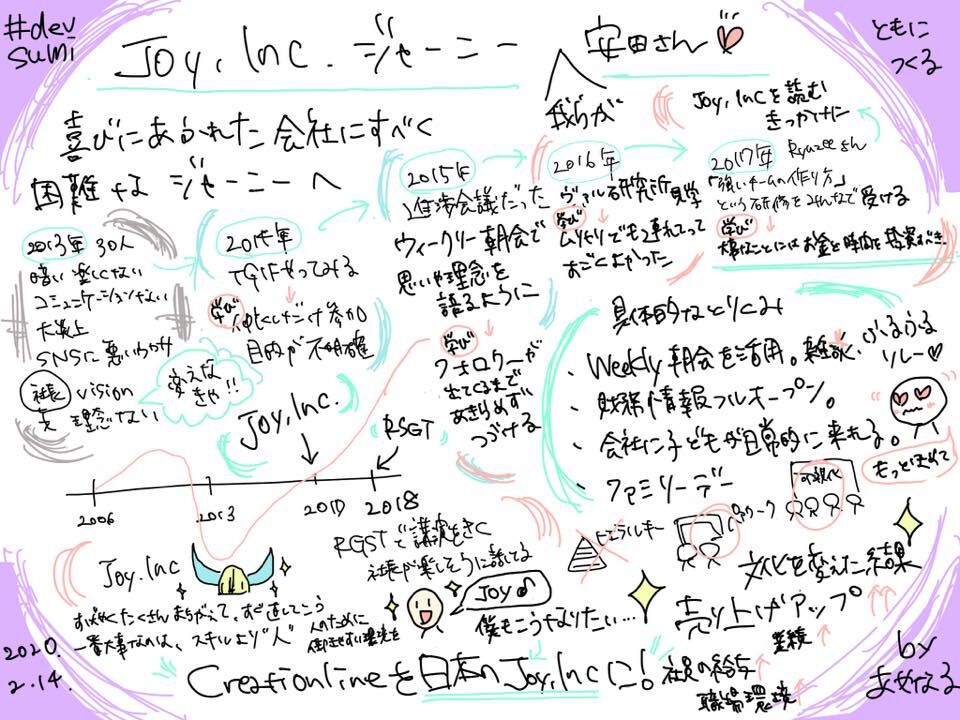 #dev
sumi
Joy, Inc. ジャーニー
安田さん
ともに
つくる
喜びにあふれた会社にすべく
困難なジャーニーへ
我らが
Joy, Incを読む
きっかけに
2013年 30人
暗い 楽しくない
コミュニケーションない
大炎上
SNSに悪いうわさ
社長 vision
も 理念ない
変えな
きゃ!!
2014年
TGIFやってみる
学び
仲良しだけ参加
目的が不明確
2015年
進捗会議だった
ウィークリー朝会で
思いや理念を
語るように
学び
フォロワーが
出てくるまで
あきらめず
つづける
2016年
ヴァル研究所見学
学び
ムリヤリでも連れてって
すごくよかった
2017年 Ryuzeeさん
「強いチームの作り方」
という研修をみんなで受ける
学び
大事なことにはお金と時間を投資すべき
Joy, Inc.
RSGT
2006
2013
2017
2018
具体的なとりくみ
・Weekly朝会を活用。雑談、ふるふる
リレー
・財務情報フルオープン。
・会社に子どもが日常的に来れる。
・ファミリーデー
もっとほめて
ヒエラルキー
ペアワーク
可視化
RGSTで講演をきく
社長が楽しそうに話してる
Joy
僕もこうなりたい…
Joy, Inc
すばやくたくさんまちがえて、すぐ直していこう
一番大事なのは、スキルより"人"
人のために
働きやすい環境を
文化を変えた結果
売り上げアップ
業績
社員の給与
職場環境
Creationlineを日本のJoy, Incに!
2020.
2.14.
by
あめなる